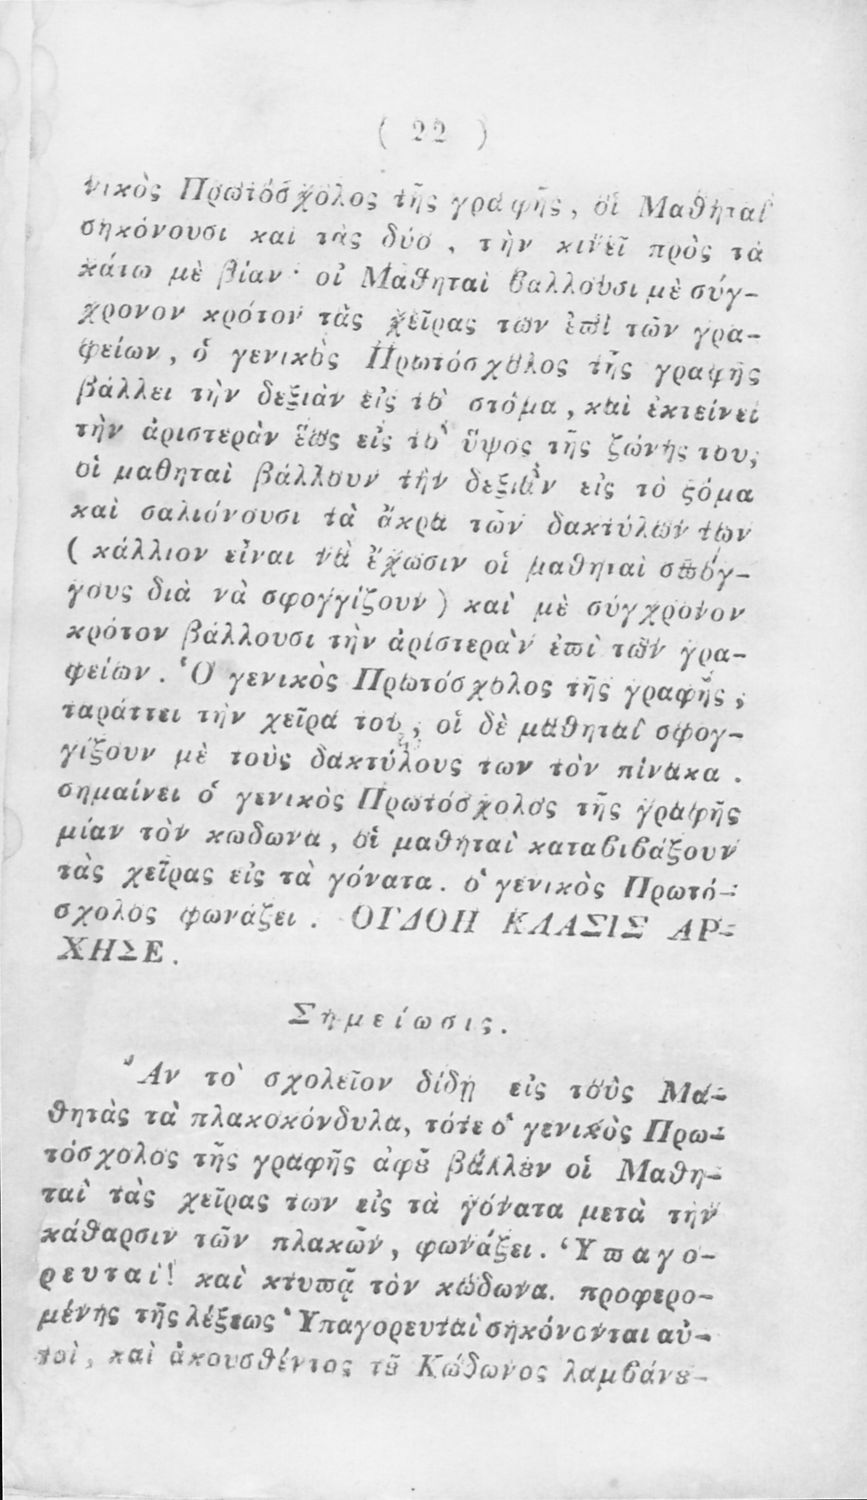 ( 22 )
νικὸς Πρωτόσχολος τῆς γραφῆς, οἱ Μαθηταὶ
σηκόνουσι καὶ τὰς δύο, τὴν κινεῖ πρὸς τὰ
κάτω μὲ βίαν· οἱ Μαθηταὶ βαλλουσι μὲ σύγ-
χρονον κρότον τὰς χεῖρας των ἐπὶ τῶν γρα-
φείων, ὁ γενικὸς Πρωτόσχολος τῆς γραφῆς
βάλλει τὴν δεξιὰν εἰς τὸ στόμα, καὶ ἐκτείνει
τὴν ἀριστερὰν ἕως εἰς τὸ ὕψος τῆς ζώνης του,
οἱ μαθηταὶ βάλλουν τὴν δεξιὰν εἰς τὸ ϛόμα
καὶ σαλιόνουσι τὰ ἄκρα τῶν δακτύλων των
( κάλλιον εἶναι νὰ ἔχωσιν οἱ μαθηταὶ σπόγ-
γους διὰ νὰ σφογγίζουν ) καὶ μὲ σύγχρονον
κρότον βάλλουσι τὴν ἀρίστερὰν ἐπὶ τῶν γρα-
φείων. Ὁ γενικὸς Πρωτόσχολος τῆς γραφῆς,
ταράττει τὴν χεῖρα του, οἱ δὲ μαθηταὶ σφογ-
γίζουν μὲ τοὺς δακτύλους των τὸν πίνακα.
σημαίνει ὁ γενικὸς Πρωτόσχολος τῆς γραφῆς
μίαν τὸν κωδωνα, οἱ μαθηταὶ καταβιβάζουν
τὰς χεῖρας εἰς τὰ γόνατα. ὁ γενικὸς Πρωτό-
σχολος φωνάζει. ΟΓΔΟΗ ΚΛΑΣΙΣ ΑΡ-
ΧΗΣΕ.
Σημείωσις.
Ἂν τὸ σχολεῖον δίδῃ εἰς τοὺς Μα-
θητὰς τὰ πλακοκόνδυλα, τότε ὁ γενικὸς Πρω-
τόσχολος τῆς γραφῆς ἀφȣ͂ βάλλȣν οἱ Μαθη-
ταὶ τὰς χεῖρας των εἰς τὰ γόνατα μετὰ τὴν
κάθαρσιν τῶν πλακῶν, φωνάζει. Ὑπαγο-
ρευταὶ! καὶ κτυπᾷ τὸν κώδωνα. προφερο-
μένης τῆς λέξεως Ὑπαγορευταὶ σηκόνονται αὐ-
τοὶ, καὶ ἀκουσθέντος τȣ͂ Κώδωνος λαμβάνȣ-